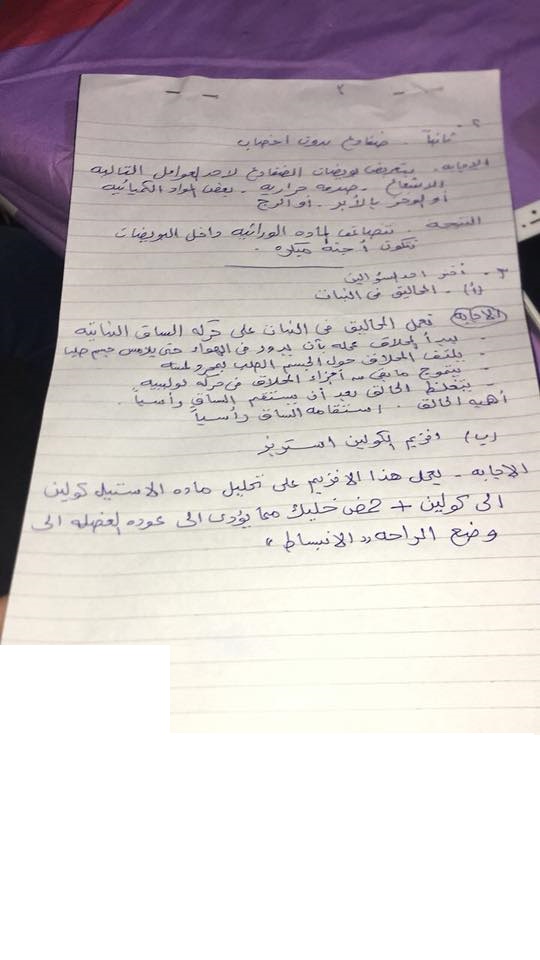 ٢
٢ -
ثانياً - ضفادع بدون اخصاب
الاجابه - بتعريض بويضات الضفادع لاحد العوامل التاليه
الاشعاع - صدمه حراريه - بعض المواد الكيميائيه
أو الوخز بالأبر - أو الرج
النتيجة - تتضاعف الماده الوراثيه داخل البويضات
تتكون أجنة مبكره
٣ - أختر احد السؤالين
(أ) - المحاليق فى النبات
الاجابة تعمل المحاليق فى النبات على حركه الساق النباتيه
- يبدأ المحلاق عمله بأن يدور فى الهواء حتى يلامس جسم صلبا
- يلتف المحلاق حول الجسم الصلب بمجرد لمسه
- يتموج مابقى من أجزاء المحلاق فى حركه لولبيه
- يتغلظ الحالق بعد أن يستقيم الساق رأسياً
أهميه الحالق - استقامه الساق رأسياً
(ب) انزيم الكولين استريز
الاجابه - يعمل هذا الانزيم على تحليل ماده الاستيل كولين
الى كولين + حمض خليك مما يؤدى الى عوده العضله الى
وضع الراحه « الانبساط »